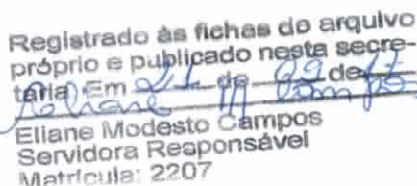 Registrado às fichas do arquivo
próprio e publicado nesta secre-
taria Em 21 de 09 de 17
Eliane M Campos
Eliane Modesto Campos
Servidora Responsável
Matrícula: 2207